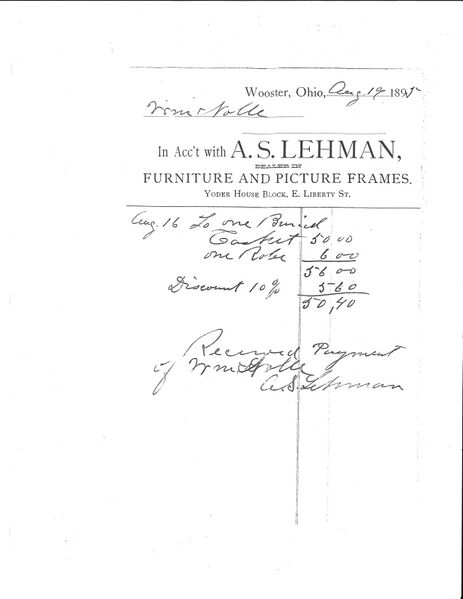 Wooster, Ohio, Aug. 19 1895
Wm Nolle
In Acc't with A. S. LEHMAN,
DEALER IN
FURNITURE AND PICTURE FRAMES.
YODER HOUSE BLOCK, E. LIBERTY ST.
Aug. 16 To one Buried
Casket 50 00
one Robe 6 00
56 00
Discount 10% 5 60
50,40
Received Payment
of Wm Nolle
A.S. Lehman